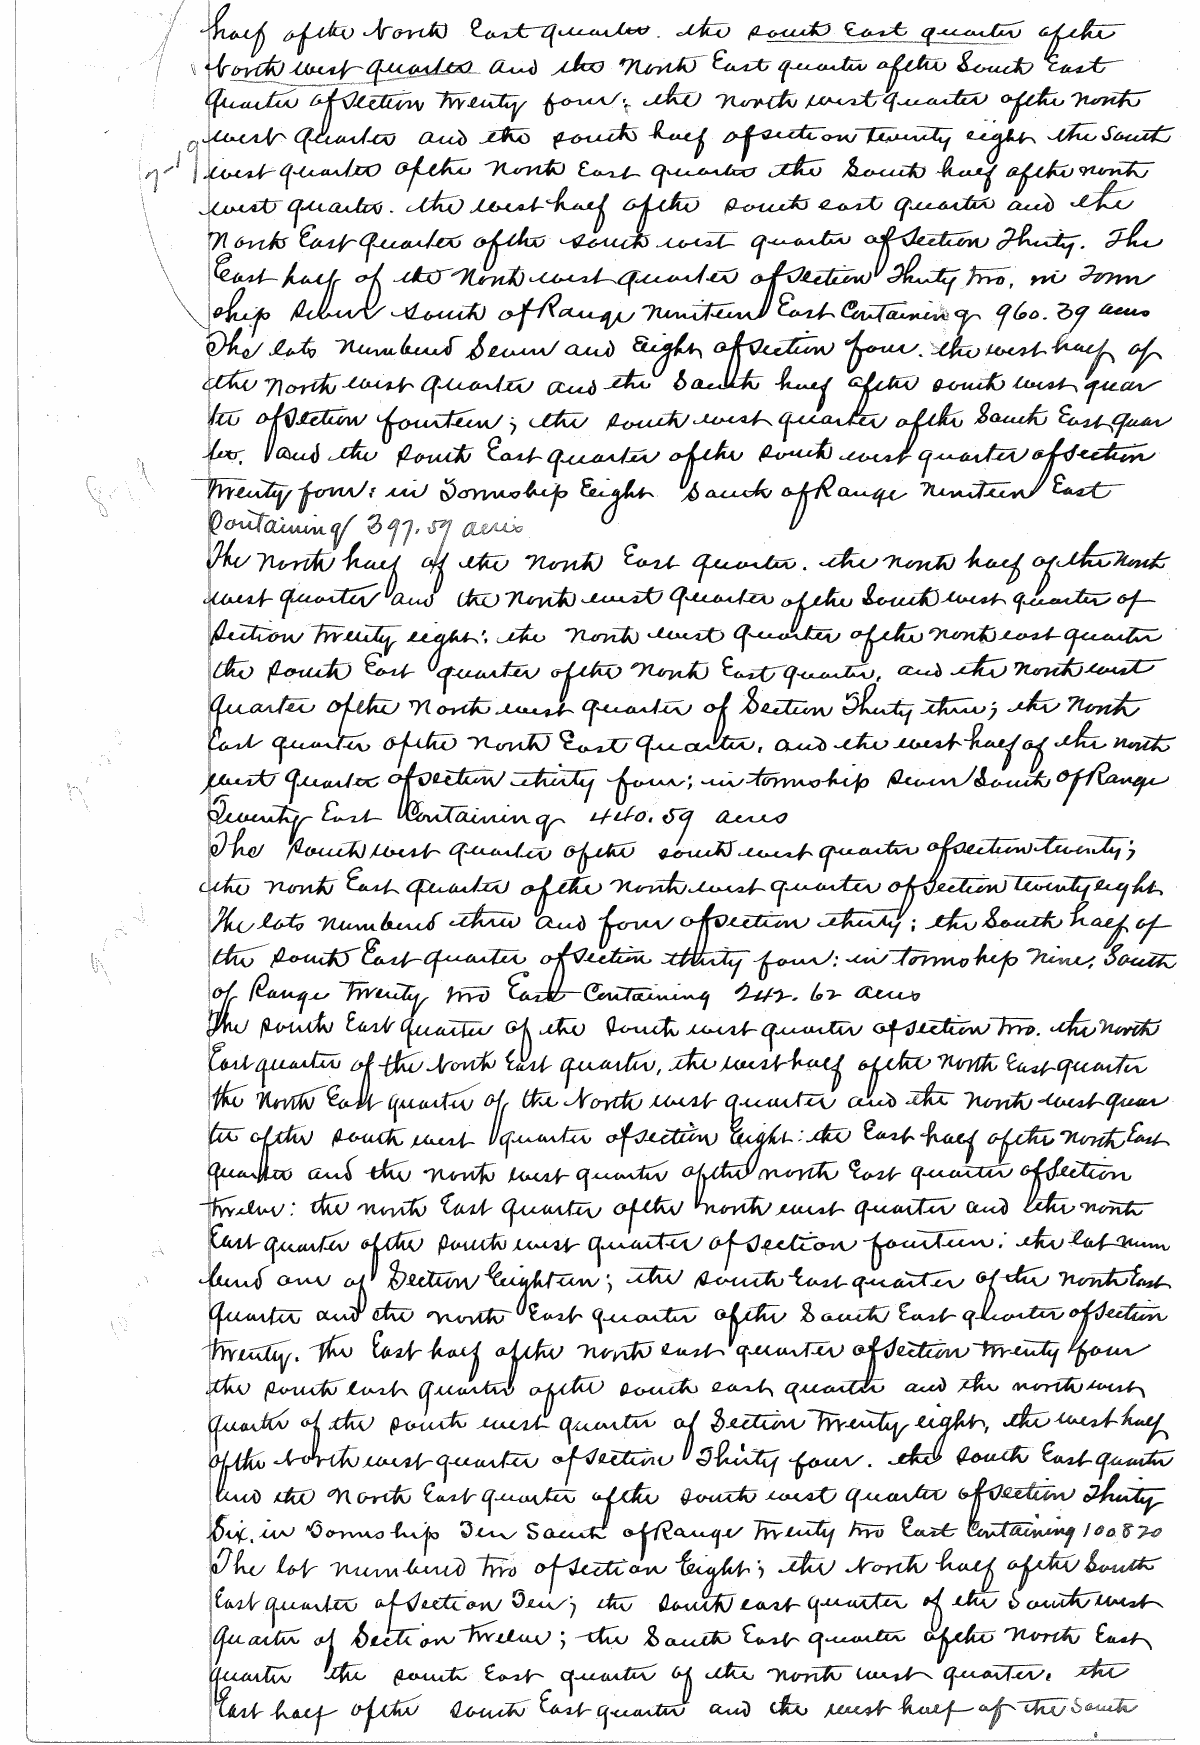 half of the North East quarter. the south East quarter of the
North west quarter and the North East quarter of the South East
quarter of Section Twenty four; the north west quarter of the north
west quarter and the south half of section twenty eight the South
west quarter of the North East quarter the South half of the north
west quarter. the west half of the south east quarter and the
North East quarter of the south west quarter of Section Thirty. The
East half of the North west quarter of Section Thirty two, in Town
ship seven south of Range nineteen East Containing 960.39 acres
The lots numbered Seven and Eight of section four. the west half of
the North west quarter and the South half of the south west quar
ter of Section fourteen; the south west quarter of the South East quar
ter. and the South East quarter of the south west quarter of Section
Twenty four: in Township Eight South of Range Nineteen East
Containing 397.59 acres
The North half of the North East quarter. the north half of the North
west quarter and the North west quarter of the South west quarter of
Section Twenty eight: the North west quarter of the north east quarter
the South East quarter of the North East quarter, and the North west
quarter of the North west quarter of Section Thirty three; the North
East quarter of the North East quarter, and the west half of the north
west quarter of section thirty four; in township seven South of Range
Twenty East Containing 440.59 acres
The South west quarter of the south west quarter of section twenty;
the north East quarter of the North west quarter of Section twenty eight
The lots numbered three and four of section thirty; the South half of
the South East quarter of Section thirty four: in township Nine, South
of Range Twenty two East Containing 242.62 acres
The South East quarter of the South west quarter of section two. the north
East quarter of the North East quarter, the west half of the North East quarter
the North East quarter of the North west quarter and the North west quar
ter of the south west quarter of section Eight: the East half of the North East
quarter and the north west quarter of the north East quarter of Section
twelve: the north East quarter of the north west quarter and the north
East quarter of the south west quarter of Section fourteen: the lot num
bered one of Section Eighteen; the South East quarter of the North East
quarter and the north East quarter of the South East quarter of Section
Twenty. the East half of the north east quarter of section twenty four
the south east quarter of the south east quarter and the north west
quarter of the south west quarter of Section Twenty eight, the west half
of the North west quarter of Section Thirty four. the South East quarter
and the North East quarter of the south west quarter of Section Thirty
Six, in Township Ten South of Range Twenty two East Containing 1008 20
The lot numbered two of section Eight; the North half of the South
East quarter of Section Ten; the South east quarter of the South west
quarter of Section Twelve; the South East quarter of the North East
quarter the south East quarter of the north west quarter. the
East half of the South East quarter and the west half of the South